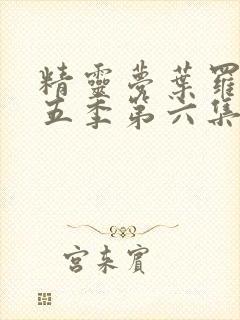 精靈夢葉羅
五季第六集
宮來賓